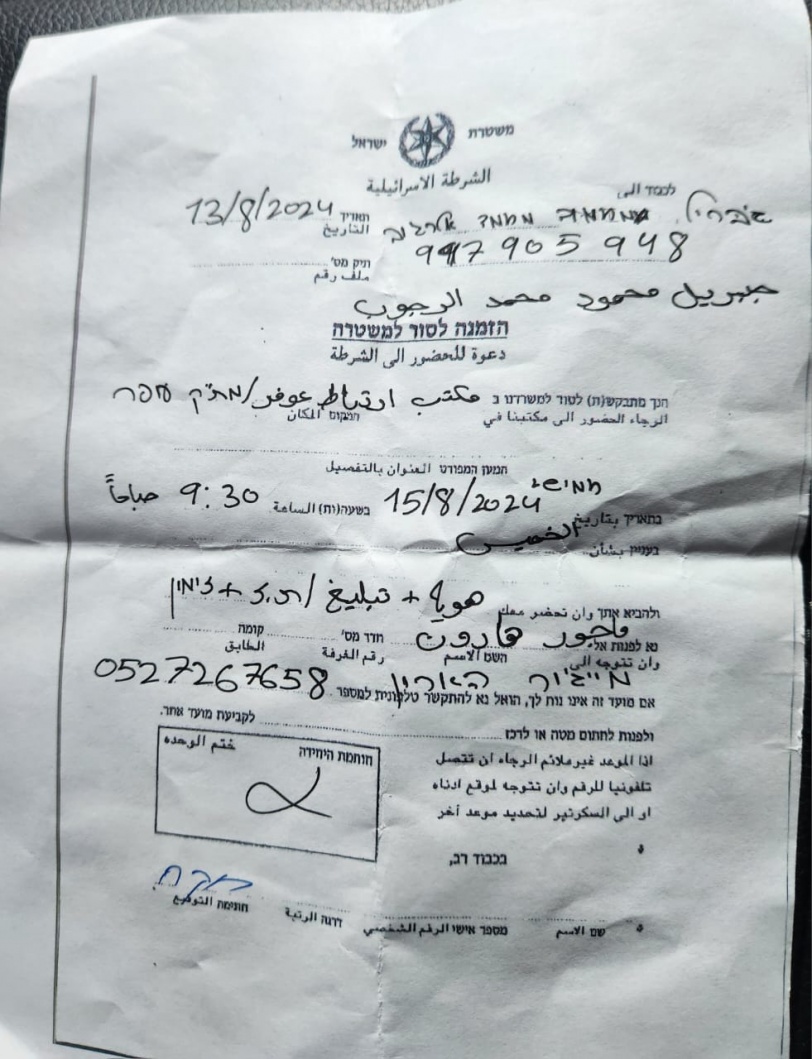 משטרת ישראל
الشرطة الاسرائيلية
לכבוד אל
תאריך 13/8/2024
التاريخ
ג'בריל מחמוד מחמד אלרג'וב
947905948
תיק מס'
ملف رقم
جبريل محمود محمد الرجوب
הזמנה לסור למשטרה
دعوة للحضور الى الشرطة
הנך מתבקש(ת) לסור למשרדנו ב مكتب ارتباط عوفر/מת"ק עפר
الرجاء الحضور الى مكتبنا في المكان
המען המפורט العنوان بالتفصيل
חמישי
בתאריך بتاريخ 15/8/2024 בשעה(ות) الساعة 9:30 صباحاً
الخميس
בעניין بشأن
هوية + تبليغ/ת.ז + זימון
ולהביא אתך وان تحضر معك
נא לפנות אל ماجور هارون חדר מס' קומה
وان تتوجه الى השם الاسم رقم الغرفة الطابق
מייג'ור הארון
אם מועד זה אינו נוח לך, הואל נא להתקשר טלפונית למספר 0527267658
ולפנות לחתום מטה או לרכז לקביעת מועד אחר.
اذا الموعد غير ملائم الرجاء ان تتصل
تلفونيا للرقم وان تتوجه لموقع ادناه
او الى السكرتير لتحديد موعد أخر
חותמת היחידה ختم الوحده
בכבוד רב,
שם الاسم מספר אישי الرقم الشخصي דרגה الرتبة חתימה التوقيع